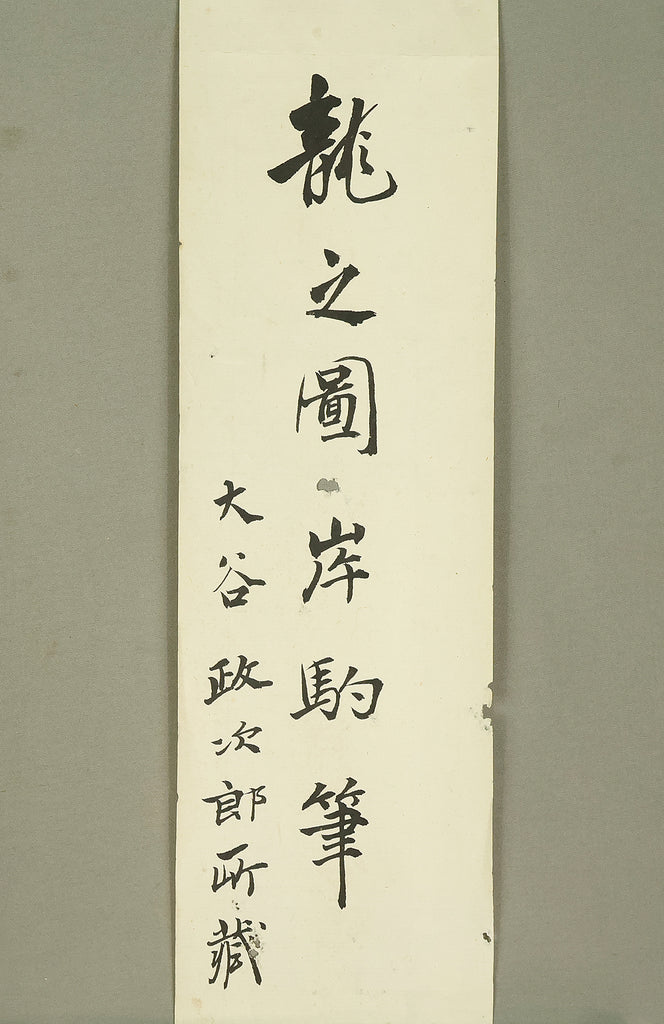 龍之圖 岸駒筆
大谷政次郎所蔵